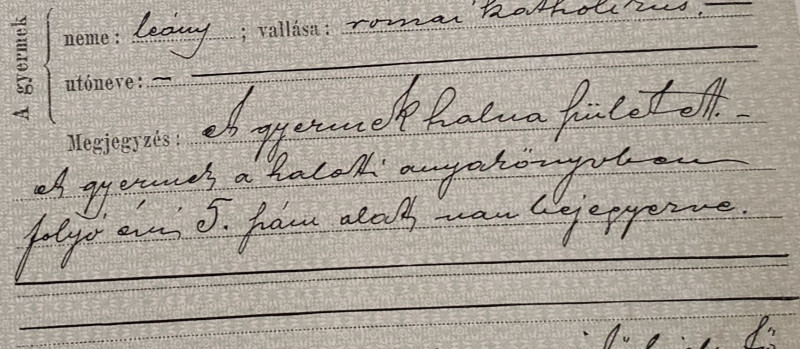 A gyermek
neme: leány ; vallása: római katholikus. —
utóneve: — 
Megjegyzés: A gyermek halva született. –
A gyermek a halotti anyakönyvben
folyó évi 5. szám alatt van bejegyezve.